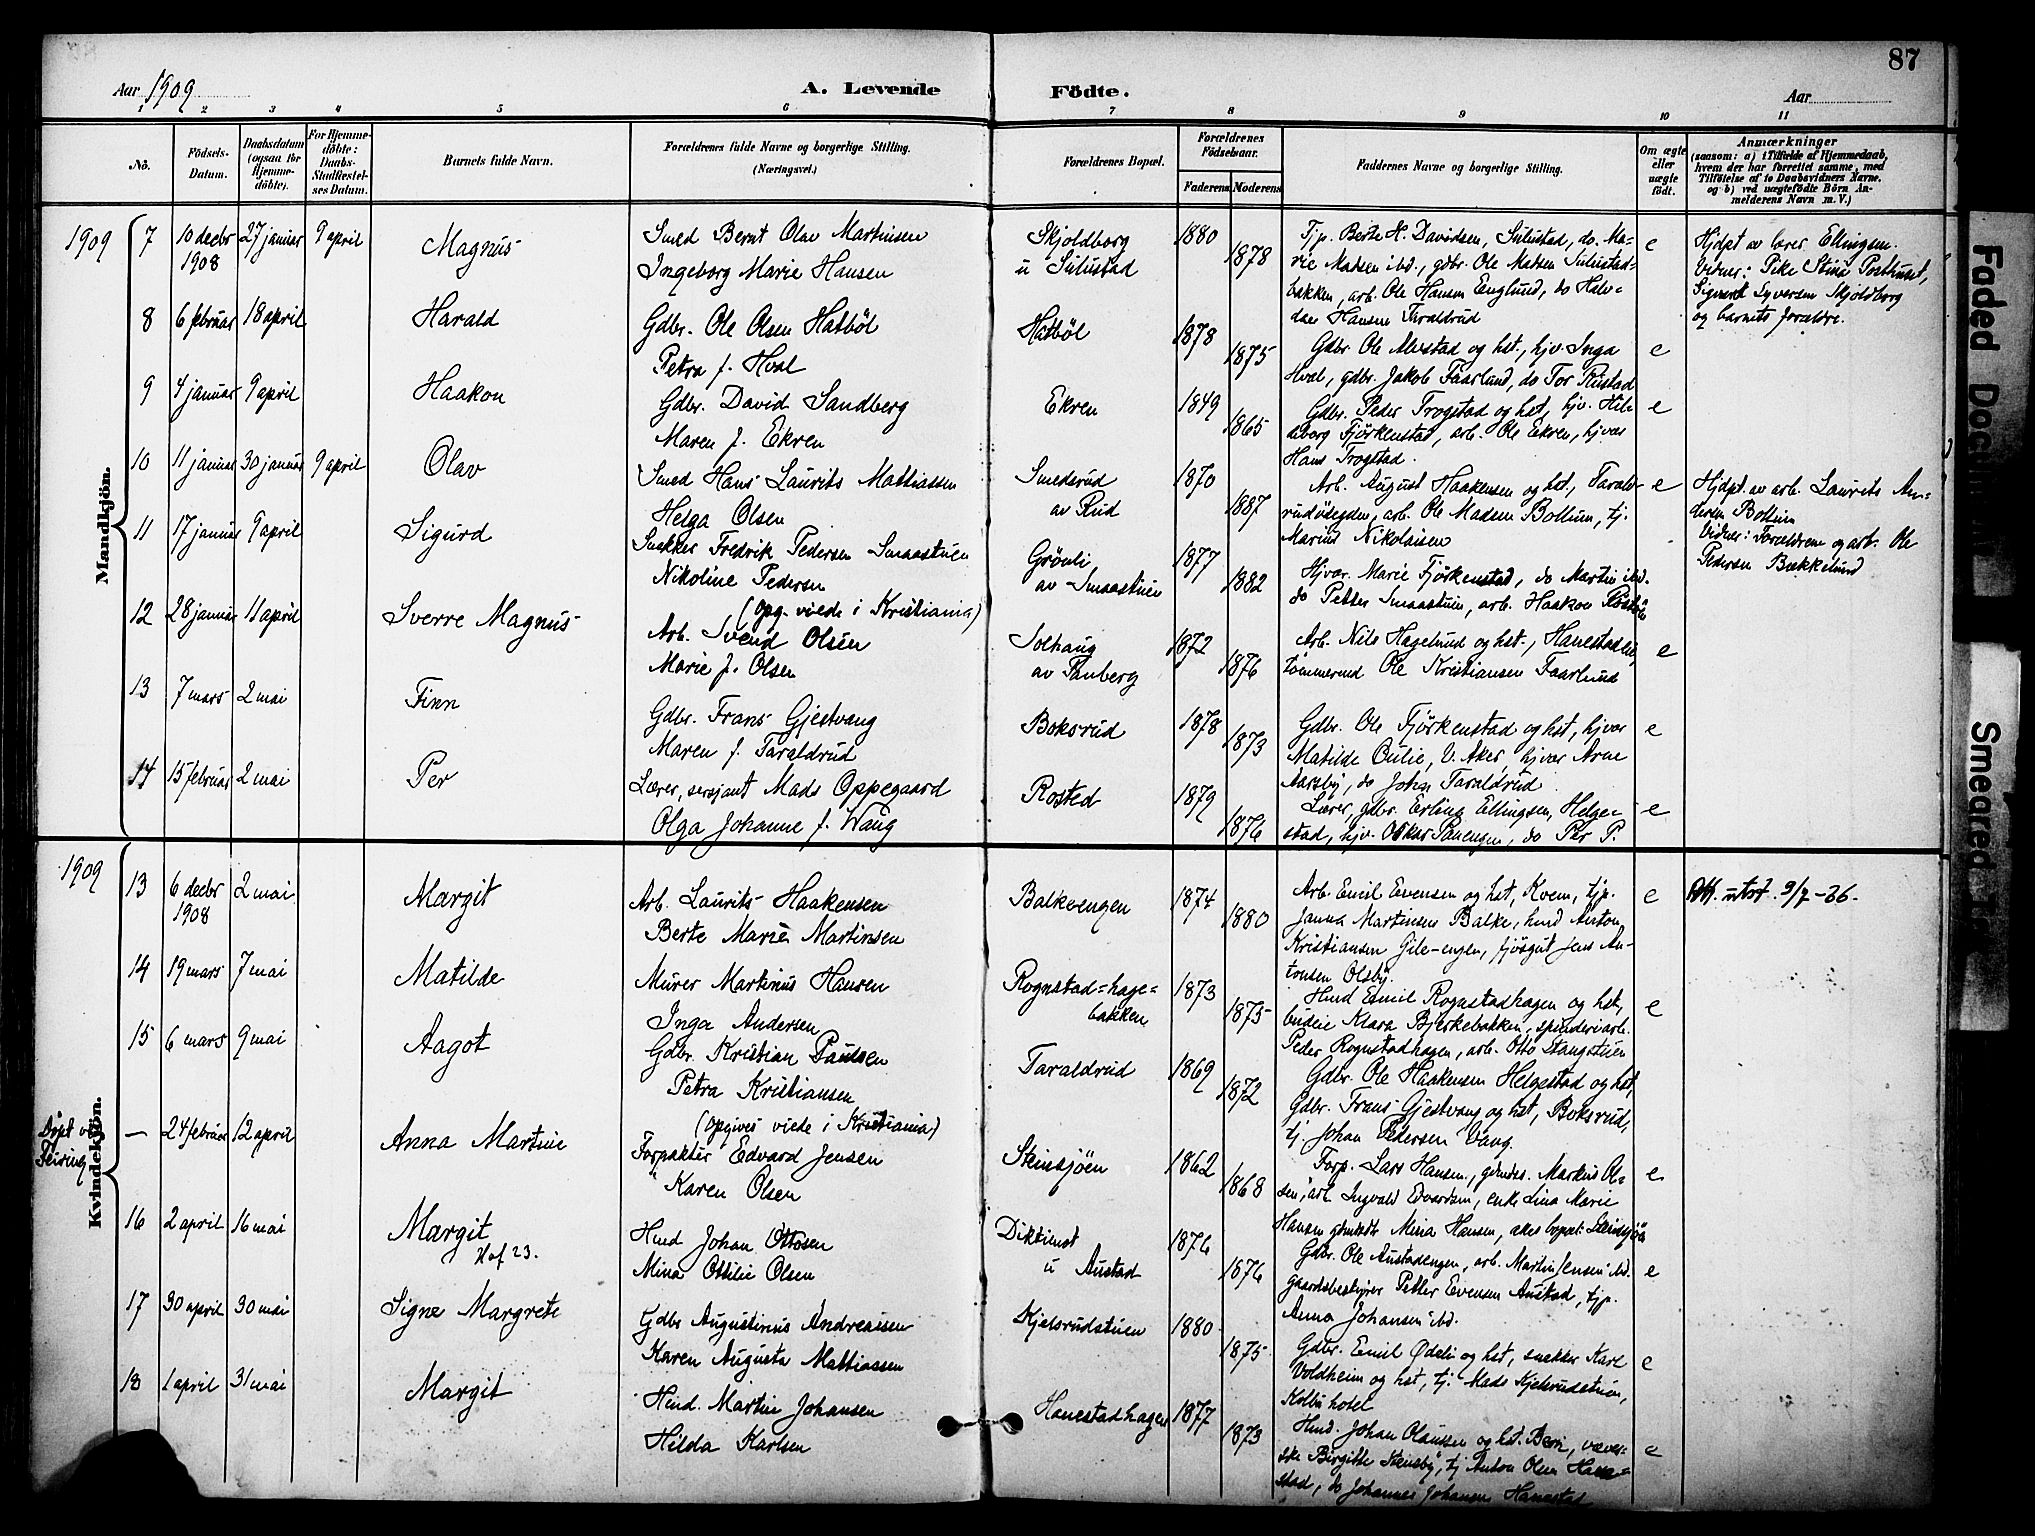 87
Aar 1909
A. Levende
Födte.
Aar
1 2 3 4 5 6 7 8 9 10 11
No.
Födsels-Datum.
Daabsdatum (ogsaa for Hjemmedöbte).
For Hjemmedöbte: Daabs-Stadfæstelses Datum.
Barnets fulde Navn.
Forældrenes fulde Navne og borgerlige Stilling. (Næringsvei.)
Forældrenes Bopæl.
Forældrenes Födselsaar.
Faderens Moderens
Faddernes Navne og borgerlige Stilling.
Om ægte eller uægte födt.
Anmærkninger
(saasom: a) i Tilfælde af Hjemmedaab, hvem der har forrettet samme, med Tilföielse af to Daabsvidners Navne. og b) ved uægtefödte Börn Anmelderens Navn m. V.)
Mandkjön.
1909 7 10 decbr 1908 27 januar 9 april Magnus
Smed Bernt Olav Martinsen
Ingeborg Marie Hansen
Skjoldborg
u Sulustad
1880 1878
Tjp. Berte H. Davidsen, Sulustad, do. Ma-
rie Madsen ibd., gdbr. Ole Madsen Sulustad-
bakken, arb. Ole Hansen Englund, do Halv-
dan Hansen Taraldrud
e
Hjdpt av lærer Ellingsen.
Vidner: Pike Stina Posthuset,
Sigvart Syversen Skjoldborg
og barnets foraldre.
8 6 februar 18 april Harald
Gdbr. Ole Olsen Hatböl
Petra f. Hval
Hatböl
1878 1875
Gdbr Ole Alvstad og hst., hjv. Inga
Hval, gdbr. Jakob Faarlund, do Tor Rustad
e
9 4 januar 9 april Haakon
Gdbr. David Sandberg
Maren f. Ekren
Ekren
1849 1865
Gdbr. Peder Trogstad og hst, hjv. Hil-
deborg Fjörkenstad, arb. Ole Ekren, hjvær
Hans Trogstad.
e
10 11 januar 30 januar 9 april Olav
Smed Hans Laurits Mattiassen
Helga Olsen
Smedsrud
av Rud
1870 1887
Arb. August Haakensen og hst, Tarald-
rudödegden, arb. Ole Madsen Bollum, tj.
Marius Nikolaisen
e
Hjdpt. av arb. Laurits An-
dersen Bollum
Vidner: Forældrene og arb. Ole
Pedersen Bækkelund
11 17 januar 9 april Sigurd
Snekker Fredrik Pedersen Smaastuen
Nikoline Pedersen
(opg. viede i Kristiania)
Grönli
av Smaastuen
1877 1882
Hjvær. Marie Fjörkenstad, do Martin ibd.
do Petter Smaastuen, arb. Haakon
12 28 januar 11 april Sverre Magnus
Arb. Svend Olsen
Marie f. Olsen
Solhaug
av Panberg
1872 1876
Arb. Nils Hagelund og hst., Hanestadlie,
tömmermd Ole Kristiansen Faarlund
e
13 7 mars 2 mai Finn
Gdbr. Frans Gjestvang
Maren f. Taraldrud
Boksrud
1878 1873
Gdbr. Ole Fjörkenstad og hst, hjvær
Matilde Bulie, V. Aker, hjvær Arne
Aarsby, do Johan Taraldrud.
e
14 15 februar 2 mai Per
Lærer, sersjant Mads Oppegaard
Olga Johanne f. Waug
Rosted
1879 1876
Lærer, gdbr. Erling Ellingsen, Helge-
stad, hjv. Oskar Panengen, do Per P.
e
Kvindekjön.
1909 13 6 decbr 1908 2 mai Margit
Arb. Laurits Haakensen
Berte Marie Martinsen
Balkeengen
1874 1880
Arb. Emil Evensen og hst, Kvem, tjp.
Janna Martinsen Balke, hmd Anton
Kristiansen Gile-engen, fjösgut Jens An-
tonsen Olsby.
e
Att. utst. 9/7-36.
14 19 mars 7 mai Matilde
Murer Martinus Hansen
Inga Andersen
Rognstad=hage=
bakken
1873 1875
Hmd Emil Rognstadhagen og hst,
budeie Klara Bjerkebakken, spinderiarb.
Peder Rognstadhagen, arb. Otto Stangstuen
e
15 6 mars 9 mai Aagot
Gdbr. Kristian Paulsen
Petra Kristiansen
(opgives viede i Kristiania)
Taraldrud
1869 1872
Gdbr. Ole Haakensen Helgestad og hst,
Gdbr. Frans Gjestvang og hst, Boksrud,
tj. Johan Pedersen Vang.
Döpt v Feiring — 24 februar 12 april Anna Martine
Forpakter Edvard Jensen
" Karen Olsen
Steinsjöen
1862 1868
Forp. Lars Hansen, gdmds. Markus Ol-
sen, arb. Ingvald Edvardsen, enke Lina Marie
Hansen gdmdsdt Mina Hansen, alles bopæl: Steinsjöen
e
16 2 april 16 mai Margit
Hmd Johan Ottosen
Mina Ottilie Olsen
u Austad
1876 1876
Gdbr. Ole Austadengen, arb. Martin Jensen ibd.
gaardsbestyrer Petter Evensen Austad, tjp.
Anna Johansen ibd.
e
17 30 april 30 mai Signe Margrete
Gdbr Augustinus Andreassen
Karen Augusta Mattiassen
Kjelsrudstuen
1880 1875
Gdbr. Emil Ødeli og hst, snekker Karl
Voldheim og hst, tj. Mads Kjelsrudstuen,
Kolbu hotel
e
18 1 april 31 mai Margit
Hmd. Martin Johansen
Hilda Karlsen
Hanestadhagen
1877 1873
Hmd. Johan Olaussen og hst. Bern, væver-
ske Birgitte Stensby, tj Anton Olsen Hane-
stad, do Johannes Johansen Hanestad
e
Faded Doc
Smeared